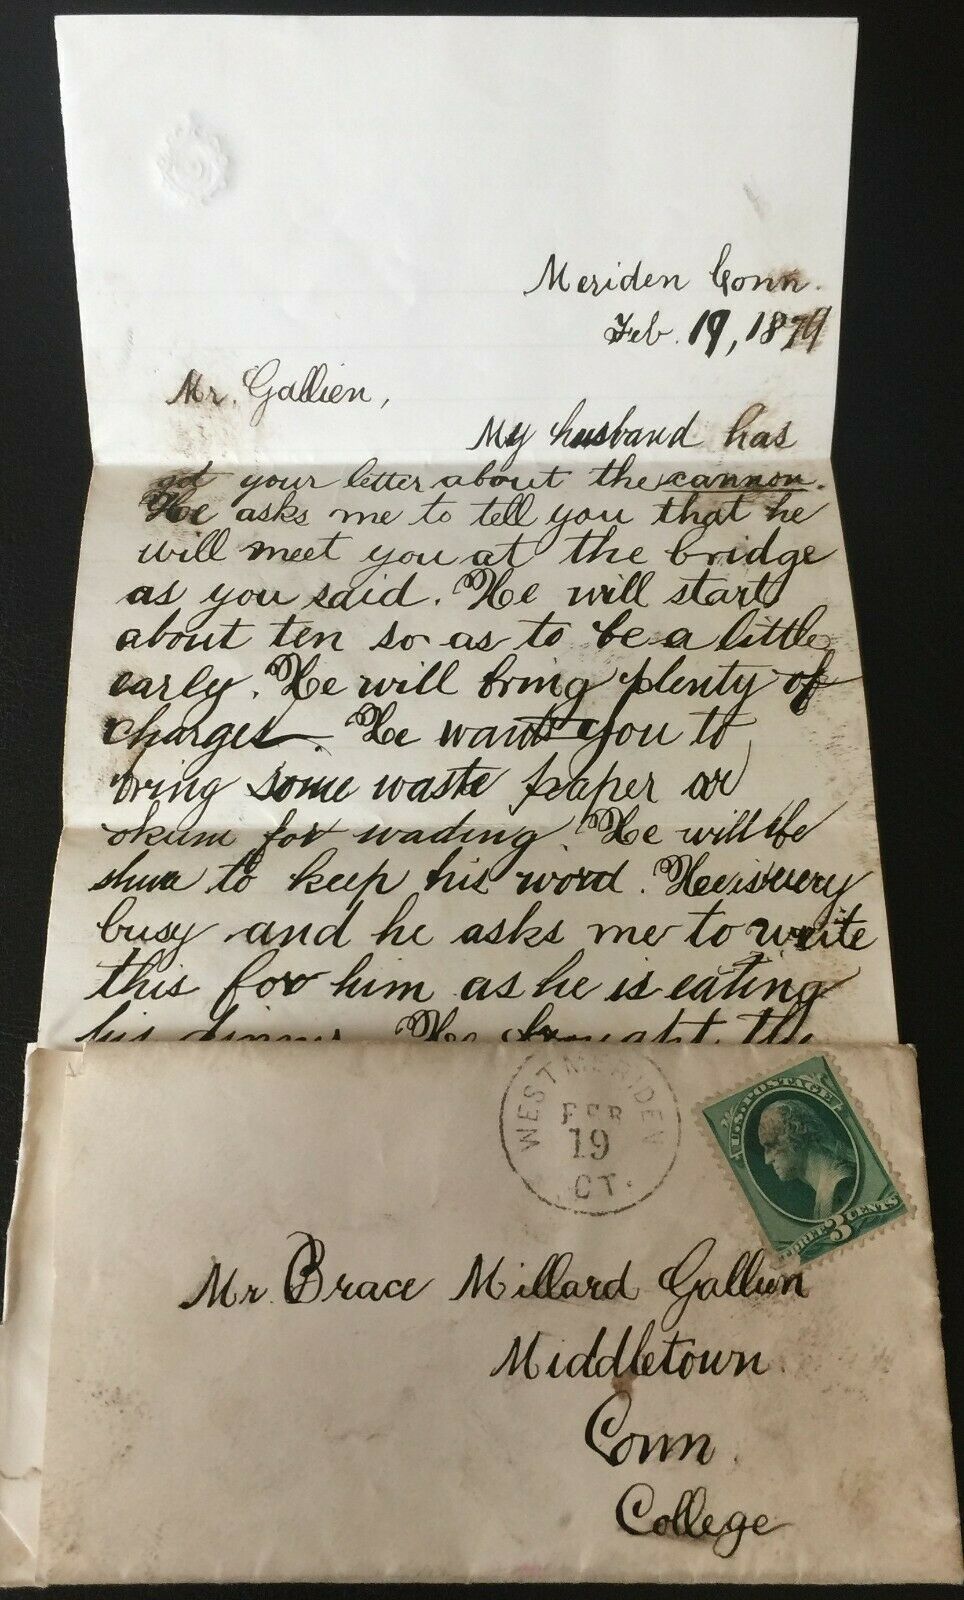 Meriden Conn.
Feb. 19, 1879
Mr. Gallien,
My husband has
got your letter about the cannon.
He asks me to tell you that he
will meet you at the bridge
as you said. He will start
about ten so as to be a little
early. He will bring plenty of
charges. He wants you to
bring some waste paper or
okum for wading. He will be
shure to keep his word. He is very
busy and he asks me to write
this for him as he is eating
his dinner. He brought the
WEST MERIDEN
FEB
19
CT.
U.S. POSTAGE
THREE 3 CENTS
Mr. Brace Millard Gallien
Middletown
Conn.
College